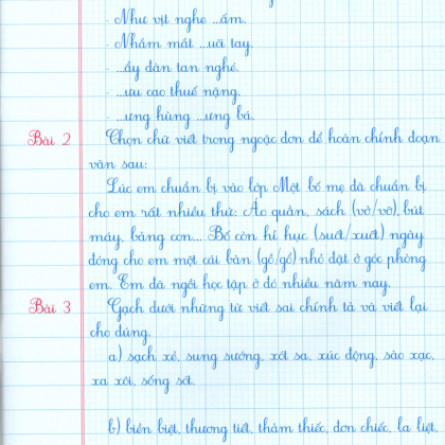 - Như vịt nghe ...ấm.
- Nhắm mắt ...uôi tay.
- ...ẩy đàn tan nghé.
- ...ưu cao thuế nặng.
- ...ừng hừng ...ừng bá.
Bài 2 Chọn chữ viết trong ngoặc đơn để hoàn chỉnh đoạn
văn sau:
Lúc em chuẩn bị vào lớp Một bố mẹ đã chuẩn bị
cho em rất nhiều thứ: Áo quần, sách (vở/vỡ), bút
máy, bảng con... Bố còn hì hục (suốt/xuốt) ngày
đóng cho em một cái bàn (gổ/gỗ) nhỏ đặt ở góc phòng
em. Em đã ngồi học tập ở đó nhiều năm nay.
Bài 3 Gạch dưới những từ viết sai chính tả và viết lại
cho đúng.
a) sạch xẽ, sung sướng, xót sa, xúc động, sào xạc,
xa xôi, sống sót.
b) biền biệt, thương tiết, thảm thiếc, đơn chiếc, la liệt